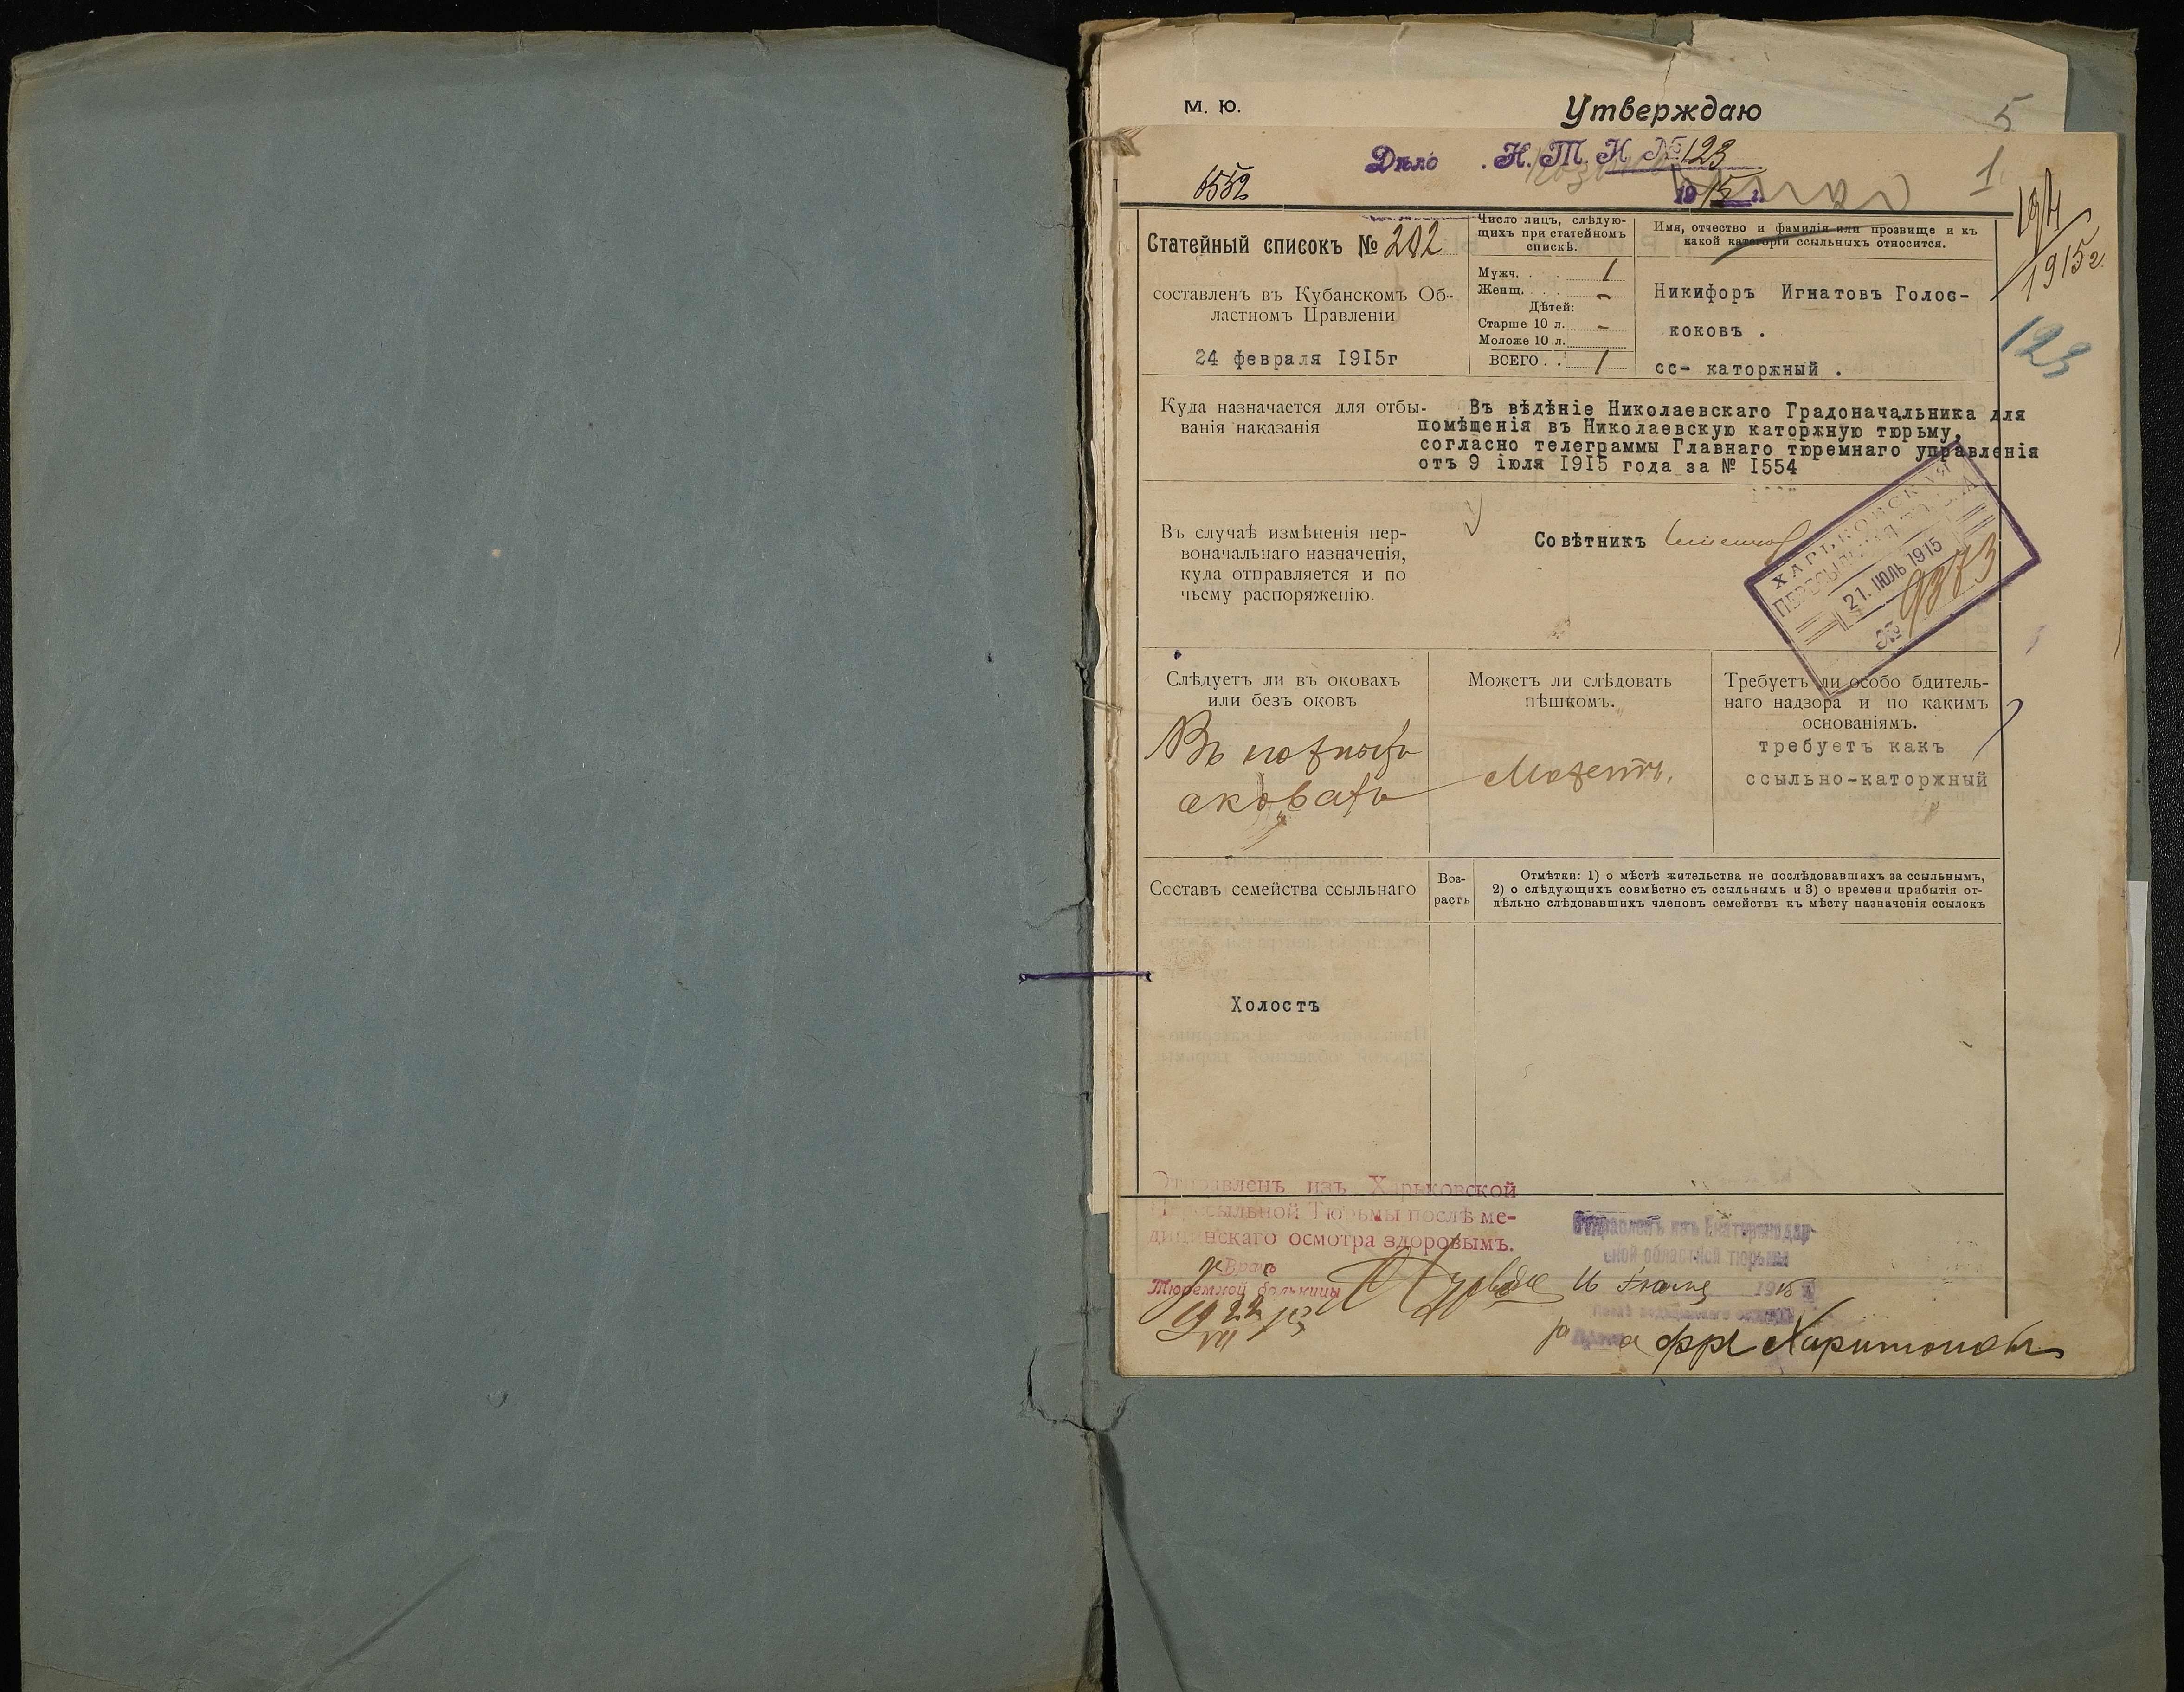 М. Ю.
Утверждаю
5
Дѣло . Н. Т. Н № 123
1915 г.
1
6552
19/4
1915 г.
123
Статейный списокъ № 202
составленъ въ Кубанскомъ Об-
ластномъ Правленіи
24 февраля 1915г
Число лицъ, слѣдую-
щихъ при статейномъ
спискѣ.
Мужч. . . 1
Женщ. . . . -
Дѣтей:
Старше 10 л. -
Моложе 10 л.
ВСЕГО . . 1
Имя, отчество и фамилія или прозвище и къ
какой категоріи ссыльныхъ относится.
Никифоръ Игнатовъ Голос-
коковъ .
сс- каторжный .
Куда назначается для отбы-
ванія наказанія
Въ вѣдѣніе Николаевскаго Градоначальника для
помѣщенія въ Николаевскую каторжную тюрьму,
согласно телеграммы Главнаго тюремнаго управленія
отъ 9 іюля 1915 года за № 1554
Въ случаѣ измѣненія пер-
воначальнаго назначенія,
куда отправляется и по
чьему распоряженію.
Совѣтникъ
ХАРЬКОВСКАЯ
ПЕРЕСЫЛЬНАЯ ТЮРЬМА
21. ІЮЛЬ 1915
№ 9373
Слѣдуетъ ли въ оковахъ
или безъ оковъ
Въ ножныхъ
оковахъ
Можетъ ли слѣдовать
пѣшкомъ.
Можетъ.
Требуетъ ли особо бдитель-
наго надзора и по какимъ
основаніямъ.
требуетъ какъ
ссыльно-каторжный
Составъ семейства ссыльнаго
Воз-
растъ
Отмѣтки: 1) о мѣстѣ жительства не послѣдовавшихъ за ссыльнымъ,
2) о слѣдующихъ совмѣстно съ ссыльнымъ и 3) о времени прибытія от-
дѣльно слѣдовавшихъ членовъ семействъ къ мѣсту назначенія ссылокъ
Холостъ
Отправленъ изъ Харьковской
Пересыльной Тюрьмы послѣ ме-
дицинскаго осмотра здоровымъ.
Врачъ
Тюремной больницы
19 22/VII 15
Отправленъ изъ Екатеринодар-
ской областной тюрьмы
16 Іюля 1915 г.
послѣ медицинскаго осмотра
за Врача фрш Харитоновъ